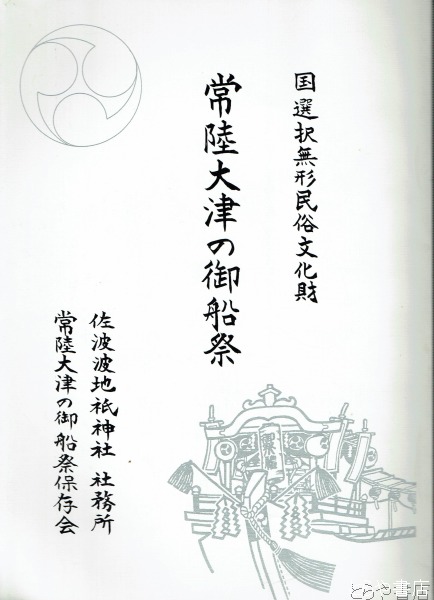 国選択無形民俗文化財
常陸大津の御船祭
佐波波地祇神社 社務所
常陸大津の御船祭保存会
とらや書店